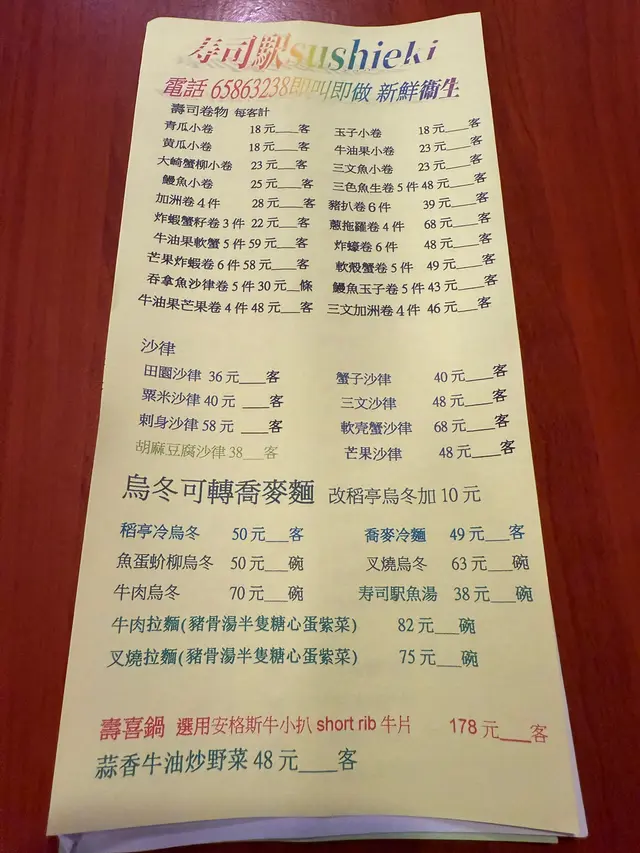 寿司駅sushieki
電話 65863238即叫即做 新鮮衞生
壽司卷物 每客計
青瓜小卷 18 元___客 玉子小卷 18 元___客
黄瓜小卷 18 元___客 牛油果小卷 23 元___客
大崎蟹柳小卷 23 元___客 三文魚小卷 23 元___客
鰻魚小卷 25 元___客 三色魚生卷 5 件 48 元___客
加洲卷 4 件 28 元___客 豬扒卷 6 件 39 元___客
炸蝦蟹籽卷 3 件 22 元___客 蔥拖羅卷 4 件 68 元___客
牛油果軟蟹 5 件 59 元___客 炸蠔卷 6 件 48 元___客
芒果炸蝦卷 6 件 58 元___客 軟殼蟹卷 5 件 49 元___客
吞拿魚沙律卷 5 件 30 元__條 鰻魚玉子卷 5 件 43 元___客
牛油果芒果卷 4 件 48 元___客 三文加洲卷 4 件 46 元___客
沙律
田園沙律 36 元___客 蟹子沙律 40 元___客
粟米沙律 40 元 ___客 三文沙律 48 元___客
刺身沙律 58 元 ___客 軟壳蟹沙律 68 元___客
胡麻豆腐沙律 38___客 芒果沙律 48 元___客
烏冬可轉喬麥麵 改稻亭烏冬加 10 元
稻亭冷烏冬 50 元___客 喬麥冷麵 49 元___客
魚蛋蚧柳烏冬 50 元___碗 叉燒烏冬 63 元___碗
牛肉烏冬 70 元___碗 寿司駅魚湯 38 元___碗
牛肉拉麵(豬骨湯半隻糖心蛋紫菜) 82 元___碗
叉燒拉麵(豬骨湯半隻糖心蛋紫菜) 75 元___碗
壽喜鍋 選用安格斯牛小扒 short rib 牛片 178 元___客
蒜香牛油炒野菜 48 元____客